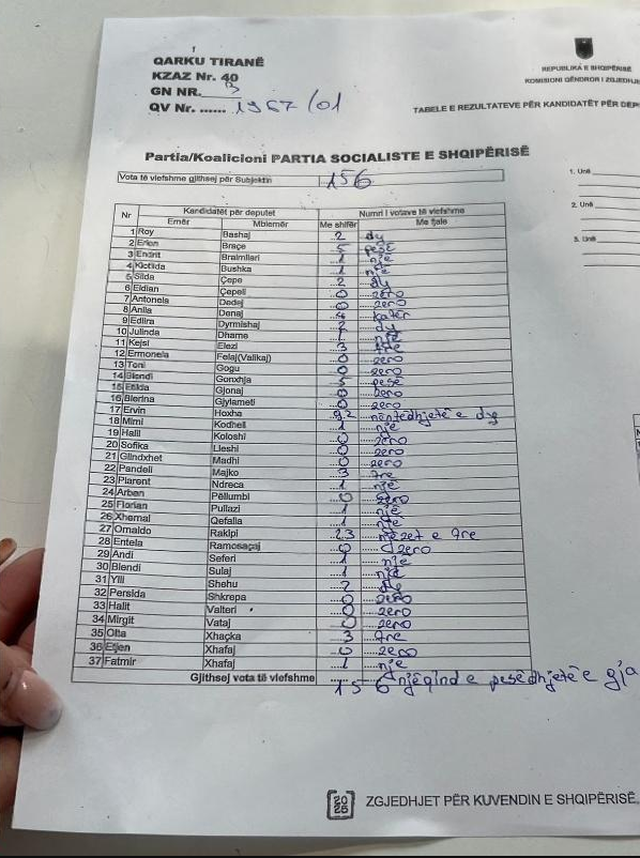 1
QARKU TIRANË
KZAZ Nr. 40
GN NR. 13
QV Nr. ...... 1967/01
REPUBLIKA E SHQIPËRISË
KOMISIONI QENDROR I ZGJEDHJE
TABELE E REZULTATEVE PËR KANDIDATËT PËR DEP
Partia/Koalicioni PARTIA SOCIALISTE E SHQIPËRISË
Vota të vlefshme gjithsej për Subjektin 156
1. Unë
2. Unë
3. Unë
Nr Kandidatët për deputet Numri i votave të vlefshme
Emër Mbiemër Me shifër Me fjale
1 Roy Bashaj 2 dy
2 Erion Braçe 5 pesë
3 Endrit Braimllari 1 një
4 Klotilda Bushka 1 një
5 Silda Çepe 2 dy
6 Eldian Çepeli 0 zero
7 Antoneta Dedej 0 zero
8 Anila Denaj 4 katër
9 Edlira Dyrmishaj 2 dy
10 Julinda Dhame 1 një
11 Kejsi Elezi 3 tre
12 Ermonela Felaj(Valikaj) 0 zero
13 Toni Gogu 0 zero
14 Blendi Gonxhja 5 pesë
15 Etilda Gjonaj 0 zero
16 Blerina Gjylameti 0 zero
17 Ervin Hoxha 92 nëntëdhjetë e dy
18 Mimi Kodheli 1 një
19 Halil Koloshi 0 zero
20 Sofika Lleshi 0 zero
21 Glindxhet Madhi 0 zero
22 Pandeli Majko 3 tre
23 Plarent Ndreca 1 një
24 Arben Pëllumbi 0 zero
25 Florian Pullazi 1 një
26 Xhemal Qefalia 1 një
27 Ornaldo Rakipi 23 njëzet e tre
28 Entela Ramosaçaj 0 zero
29 Andi Seferi 1 një
30 Blendi Sulaj 1 një
31 Ylli Shehu 2 dy
32 Persida Shkrepa 0 zero
33 Halit Valteri 0 zero
34 Mirgit Vataj 0 zero
35 Olta Xhaçka 3 tre
36 Etjen Xhafaj 0 zero
37 Fatmir Xhafaj 1 një
Gjithsej vota të vlefshme 156 njëqind e pesëdhjetë e gja
ZGJEDHJET PËR KUVENDIN E SHQIPËRISË,